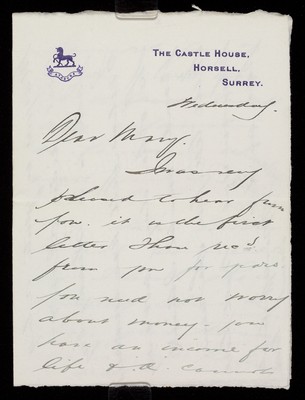 THE CASTLE HOUSE,
HORSELL,
SURREY.
Wednesday.
Dear Mary.
I was very
pleased to hear from
you. it is the first
letter I have recd
from you for years.
You need not worry
about money. you
have an income for
life & it cannot